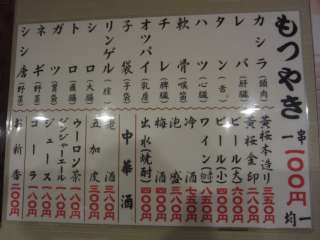 もつやき 一串 一〇〇円均一
カシラ（頭肉）
レバ（肝臓）
タン（舌）
ハツ（心臓）
軟骨（喉笛）
チレ（脾臓）
オッパイ（乳房）
子袋（子袋）
リンゲル（膣）
シロ（大腸）
トロ（直腸）
ガツ（胃袋）
ネギ（野菜）
シシ唐（野菜）
黄桜本造り 三五〇円
黄桜金印 二八〇円
ビール（大）
ビール（小）
ワイン
泡盛
梅酒
出水（焼酎） 四〇〇円
中華酒
老酒 三八〇円
五加皮 三〇〇円
ウーロン茶 一八〇円
ジンジャーエール 一八〇円
ジュース 一八〇円
コーラ 一八〇円
お新香 二〇〇円